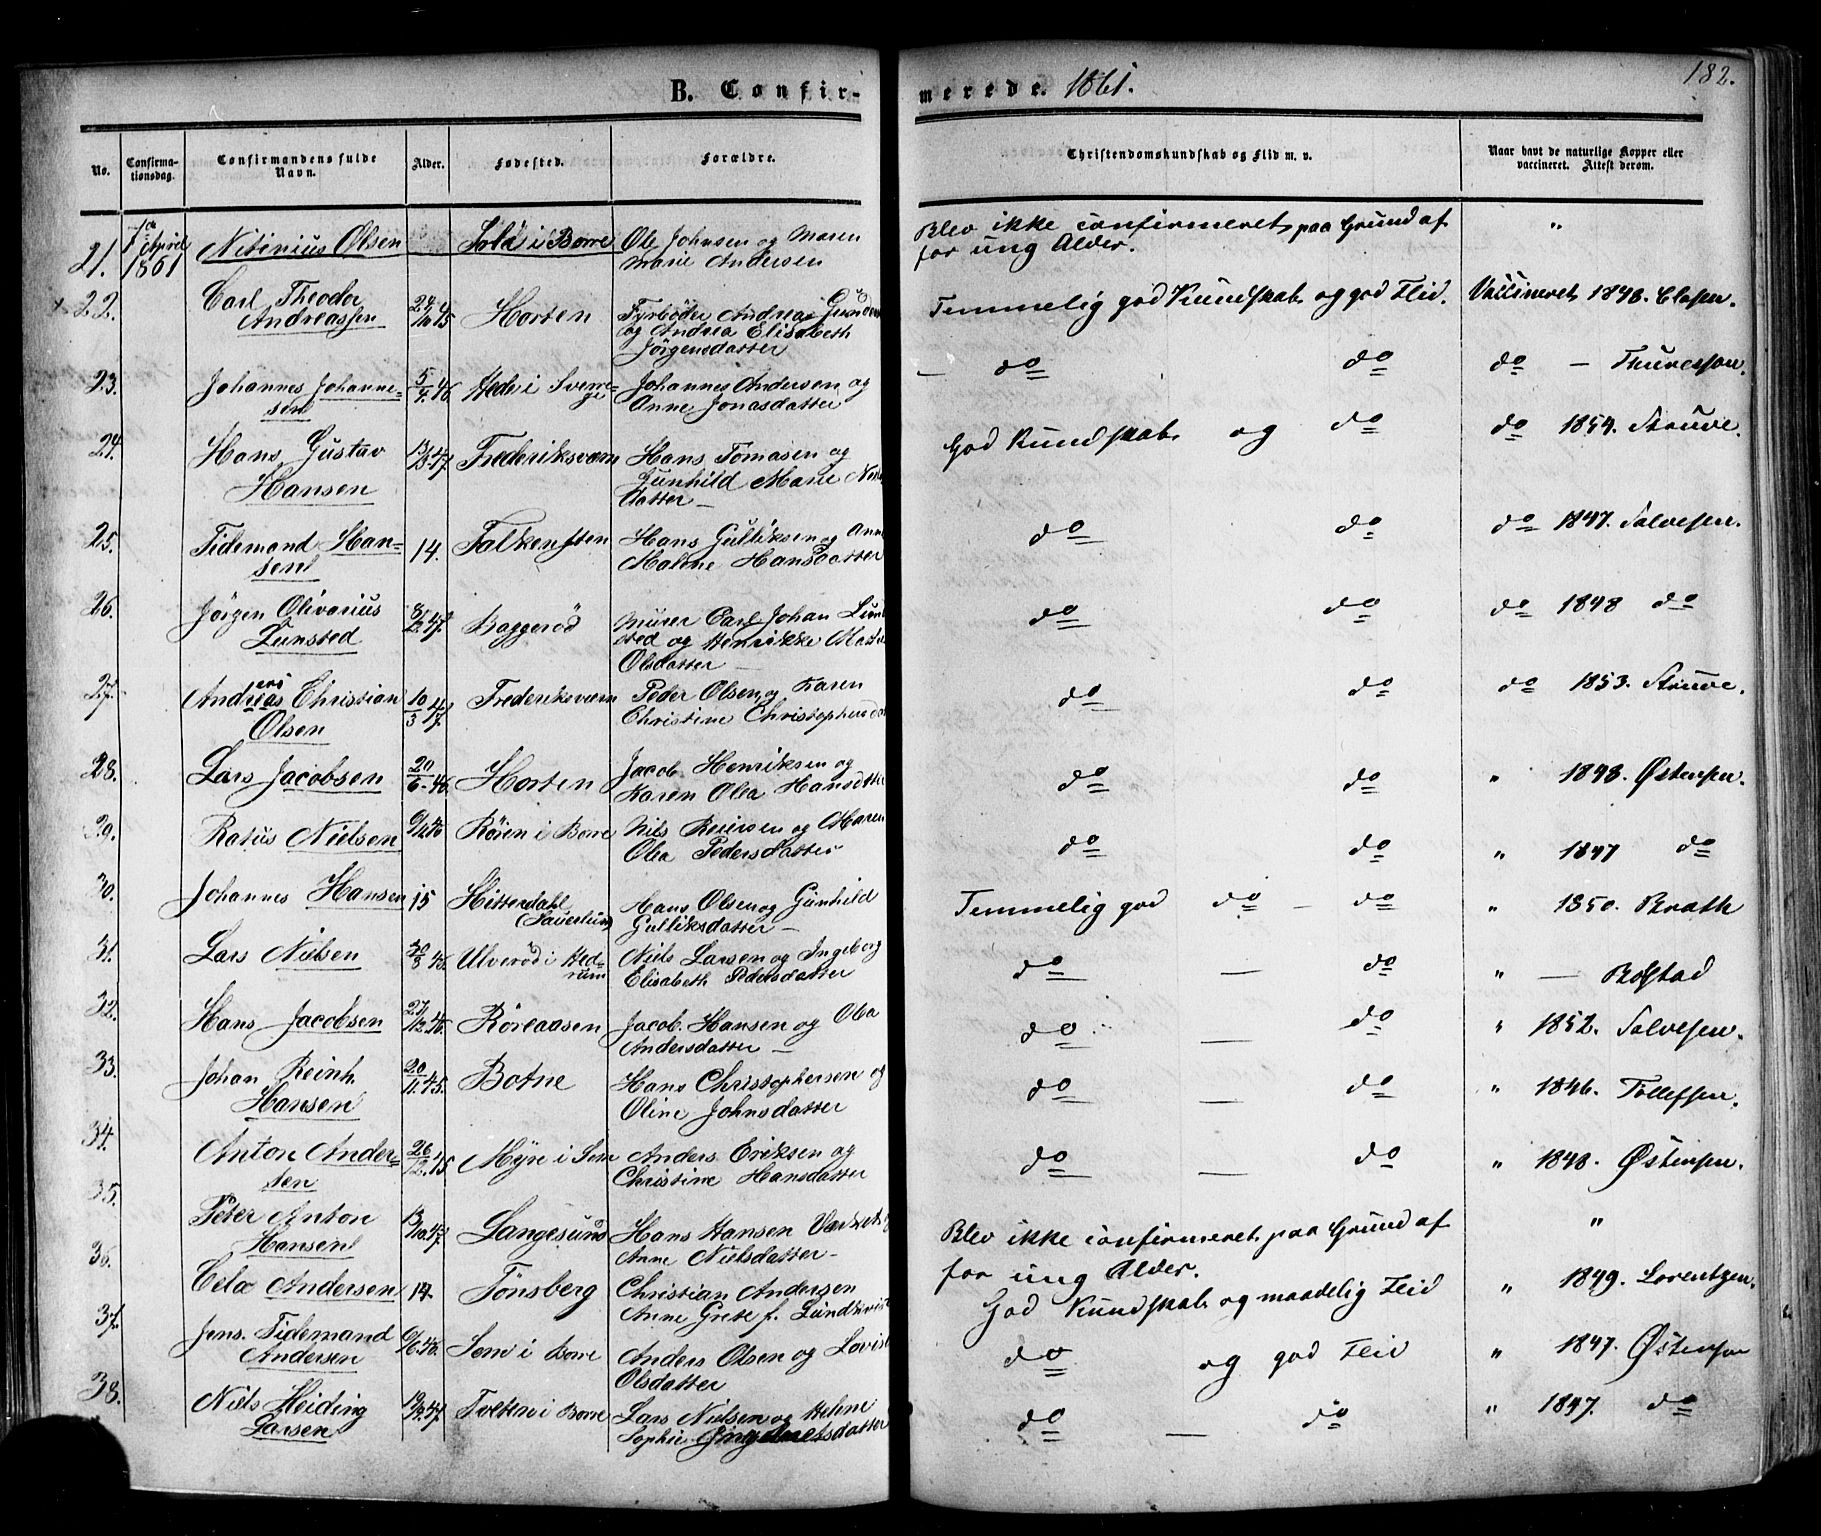 B. Confir-
merede. 1861.
182.
No.
Confirma-
tionsdag.
Confirmandens fulde
Navn.
Alder.
Fødested.
Forældre.
Christendomskundskab og Flid m. v.
Naar havt de naturlige Kopper eller
vaccineret. Attest derom.
21. April 1861 Nitinius Olsen i Borre Ole Johnsen og Maren
Marie Andersen
Blev ikke confirmeret paa Grund af
for ung Alder. "
22. Carl Theodor
Andreassen 24/10 45 Horten Fyrbøder Andreas
og Andrea Elisabeth
Jørgensdatter
Temmelig god Kundskab og god Flid. Vaccineret 1848. Clasen.
23. Johannes Johanne-
sen 5/4 46 i Sverrige Johannes Andersen og
Anne Jonasdatter
do do do — Thuvesson.
24. Hans Gustav
Hansen Frederiksværn Hans Tomasen og
Gunhild Marie
datter —
God Kundskab og do do 1854. Struve.
25. Tidemand Han-
sen 14. Falkensten Hans Gulliksen og Anne
Malene Hansdatter
do do do 1847. Salvesen.
26. Jörgen Olivarius
Lunsted 8/12 47. Baggeröd Murer Carl Johan Lund
sted og Henrikke
Olsdatter —
do do do 1848 do
27. Andreas Christian
Olsen 10/3 47. Frederiksværn Peder Olsen og Karen
Christine Christophersda
do do do 1853. Struve.
28. Lars Jacobsen 20/6 46. Horten Jacob Henriksen og
Karen Olea Hansdatter
do do " 1848. Østensen.
29. Ratus Nielsen Rösen i Borre Nils Reiersen og Maren
Olea Pedersdatter
do do " 1847 do
30. Johannes Hansen 15 Hitterdahl
Hans Olsen og Gunhild
Gulliksdatter —
Temmelig god do — do " 1850. Brath
31. Lars Nielsen Ulveröd i Hed-
rum Niels Larsen og Ingeborg
Elisabeth Pedersdatter
do — do " — Bolstad
32. Hans Jacobsen 27/12 46. Röreaasen Jacob Hansen og Olea
Andersdatter —
do — do " 1852. Salvesen.
33. Johan Reinh.
Hansen 20/11 45. Botne Hans Christophersen og
Oline Johnsdatter
do — do " 1846. Tollefsen.
34. Anton Ander-
sen 26/12 45 Myre i Sem Anders Eriksen og
Christine Hansdatter
do — do " 1848. Østensen.
35. Peter Anton
Hansen 13/10 47. Langesund Hans Hansen
Anne Nielsdatter —
Blev ikke confirmeret paa Grund af
for ung Alder. "
36. Andersen 14. Tönsberg Christian Andersen
Anne Grete f. Lundkvist
God Kundskab og maadelig Flid " 1849. Lorentzen.
37. Jens Tidemand
Andersen 6/6 46. Sem i Borre Anders Olsen og Lovise
Olsdatter
do og god Flid " 1847. Østensen
38. Niels Heiding
Larsen i Borre Lars Nielsen og Helene
Sophie
do — do " 1847. do